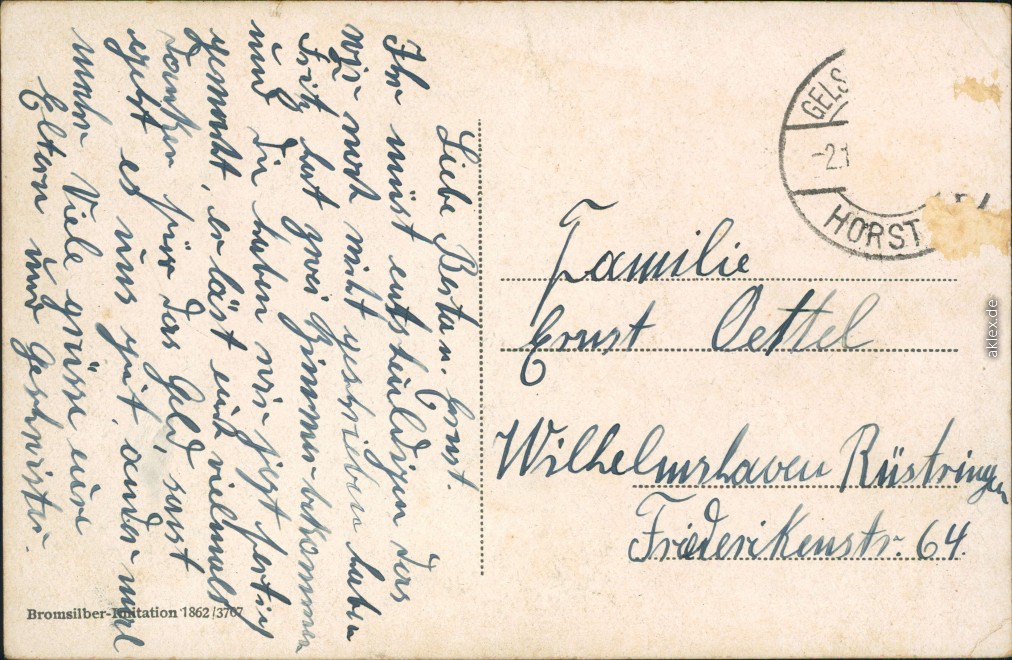 Liebe Berta u. Ernst.
Ihr müst entschuldigen das
wir noch nicht geschrieben haben
Fritz hat zwei Zimmer bekommen
und die haben wir jezt fertig
gemacht, er läst euch vielmals
Danken für das Geld, sonst
geht es uns gut, ander mal
mehr Viele grüsse eure
Eltern und Geschwister.
GELS
-2.1
HORST
Familie
Ernst Oettel
Wilhelmshaven Rüstringen
Friederikenstr. 64.
Bromsilber-Imitation 1862/3767
aklex.de